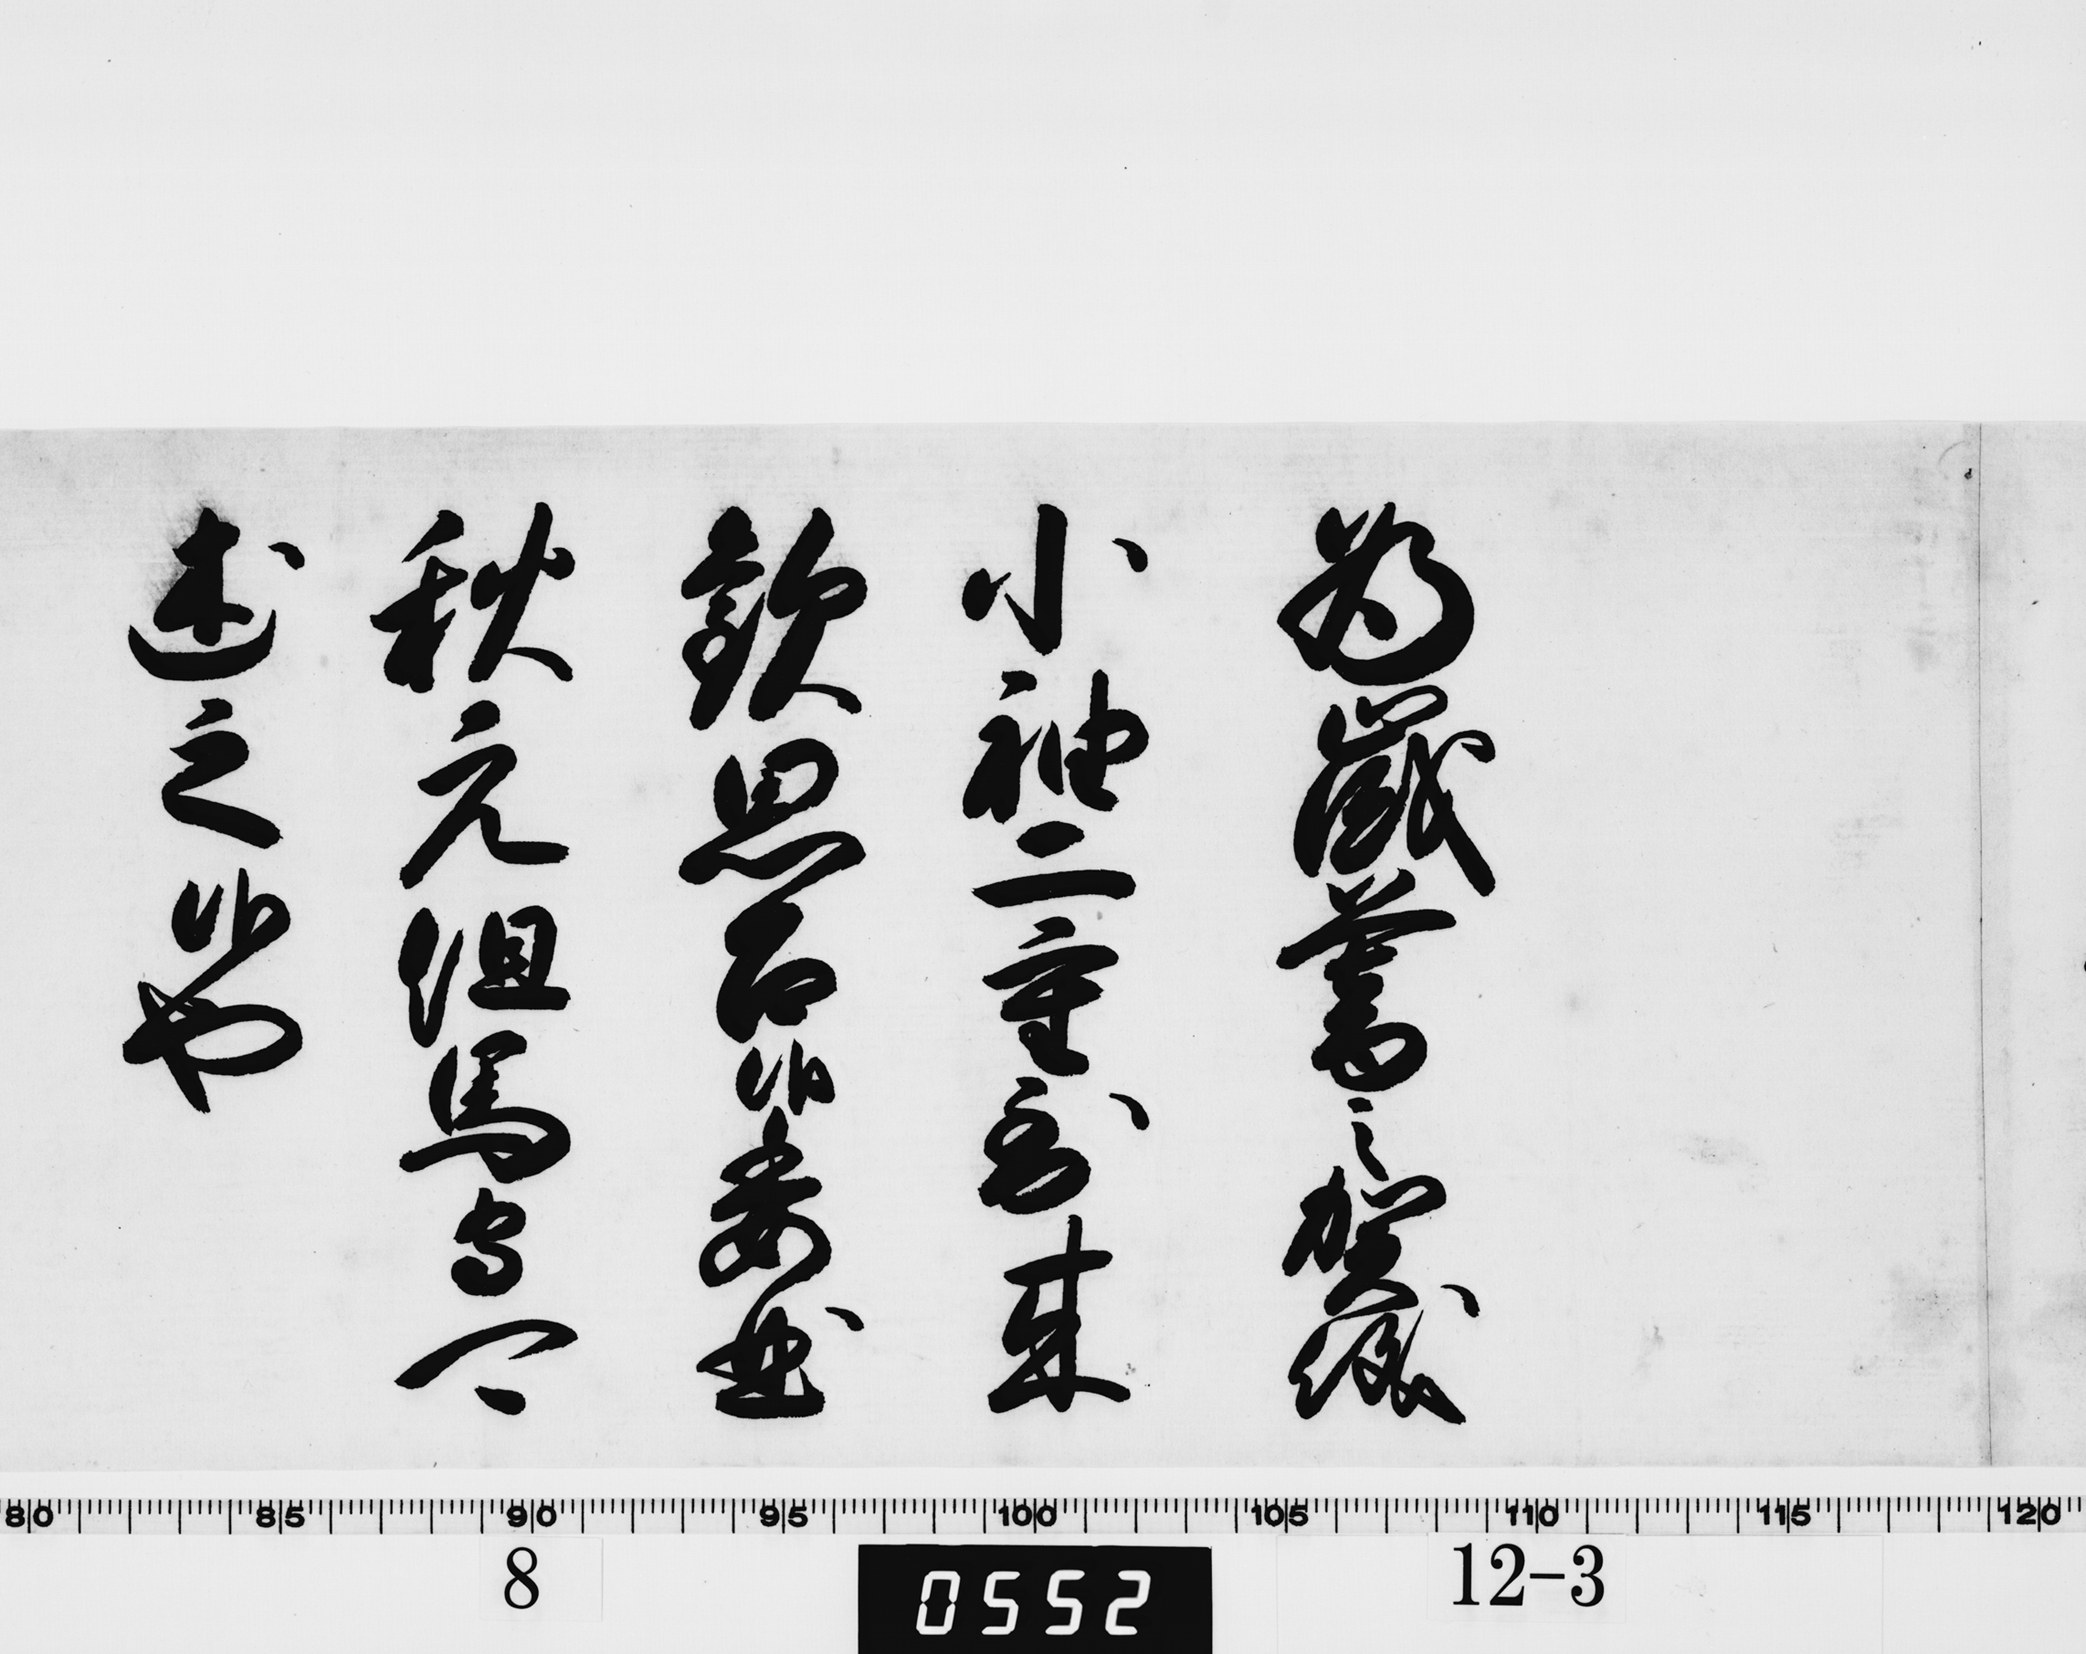 為歳暮之賀儀
小袖二重到来
歓思召候委曲
秋元但馬守可
述之候也
80 85 90 95 100 105 110 115 120
8 0552 12-3